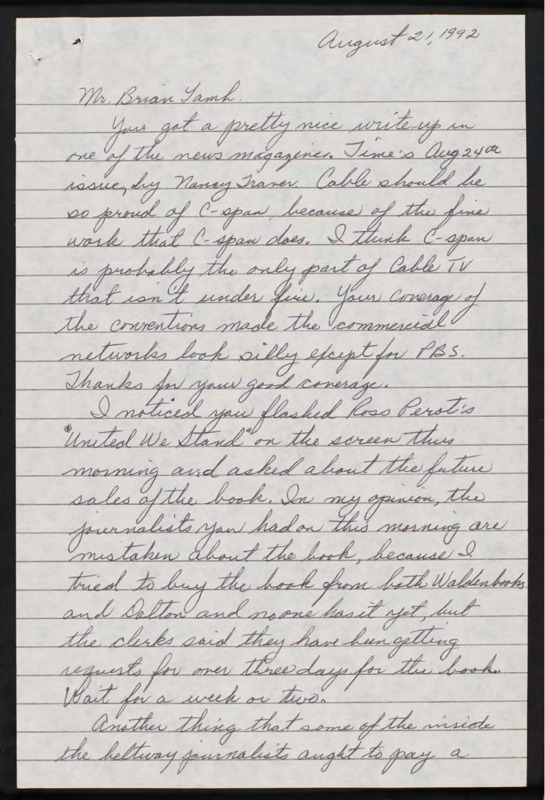 August 21, 1992
Mr. Brian Lamb.
You got a pretty nice write-up in
one of the news magazines. Time's Aug 24th
issue, by Nancy Traver. Cable should be
so proud of C-span, because of the fine
work that C-span does. I think C-span
is probably the only part of Cable TV
that isn't under fire. Your coverage of
the conventions made the commercial
networks look silly except for PBS.
Thanks for your good coverage.
I noticed you flashed Ross Perot's
"United We Stand" on the screen this
morning and asked about the future
sales of the book. In my opinion, the
journalists you had on this morning are
mistaken about the book, because I
tried to buy the book from both Waldenbooks
and Dalton and no one has it yet, but
the clerks said they have been getting
requests for over three days for the book.
Wait for a week or two.
Another thing that some of the inside
the beltway journalists aught to pay a